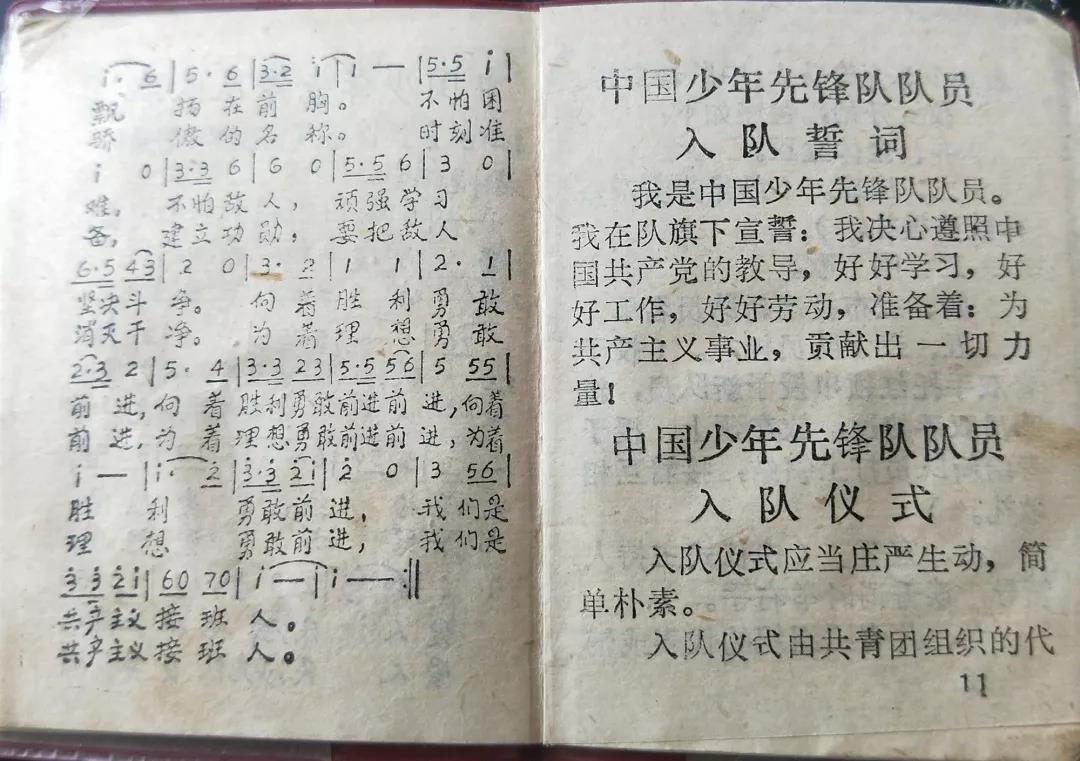 i· 6 | 5 · 6 | 3·2 i | i — | 5·5 i |
飘 扬在前 胸。 不怕困
骄 傲的名 称。 时刻准
i 0 | 3·3 6 | 6 0 | 5·5 6 | 3 0 |
难, 不怕敌人, 顽强学习
备, 建立功勋, 要把敌人
6·5 43 | 2 0 | 3· 2 | 1 1 | 2· 1 |
坚决斗争。 向着胜利勇敢
消灭干净。 为着理想勇敢
2·3 2 | 5· 4 | 3·3 23 | 5·5 56 | 5 55 |
前进,向着胜利勇敢前进前进,向着
前进,为着理想勇敢前进前进,为着
i — | i· 2 | 3·3 2i | 2 0 | 3 56 |
胜 利 勇敢前进, 我们是
理 想 勇敢前进, 我们是
3 3 2i | 60 70 | i — | i — :‖
共产主义接班人。
共产主义接班人。
中国少年先锋队队员
入队誓词
我是中国少年先锋队队员。
我在队旗下宣誓:我决心遵照中
国共产党的教导,好好学习,好
好工作,好好劳动,准备着:为
共产主义事业,贡献出一切力
量!
中国少年先锋队队员
入队仪式
入队仪式应当庄严生动,简
单朴素。
入队仪式由共青团组织的代
11